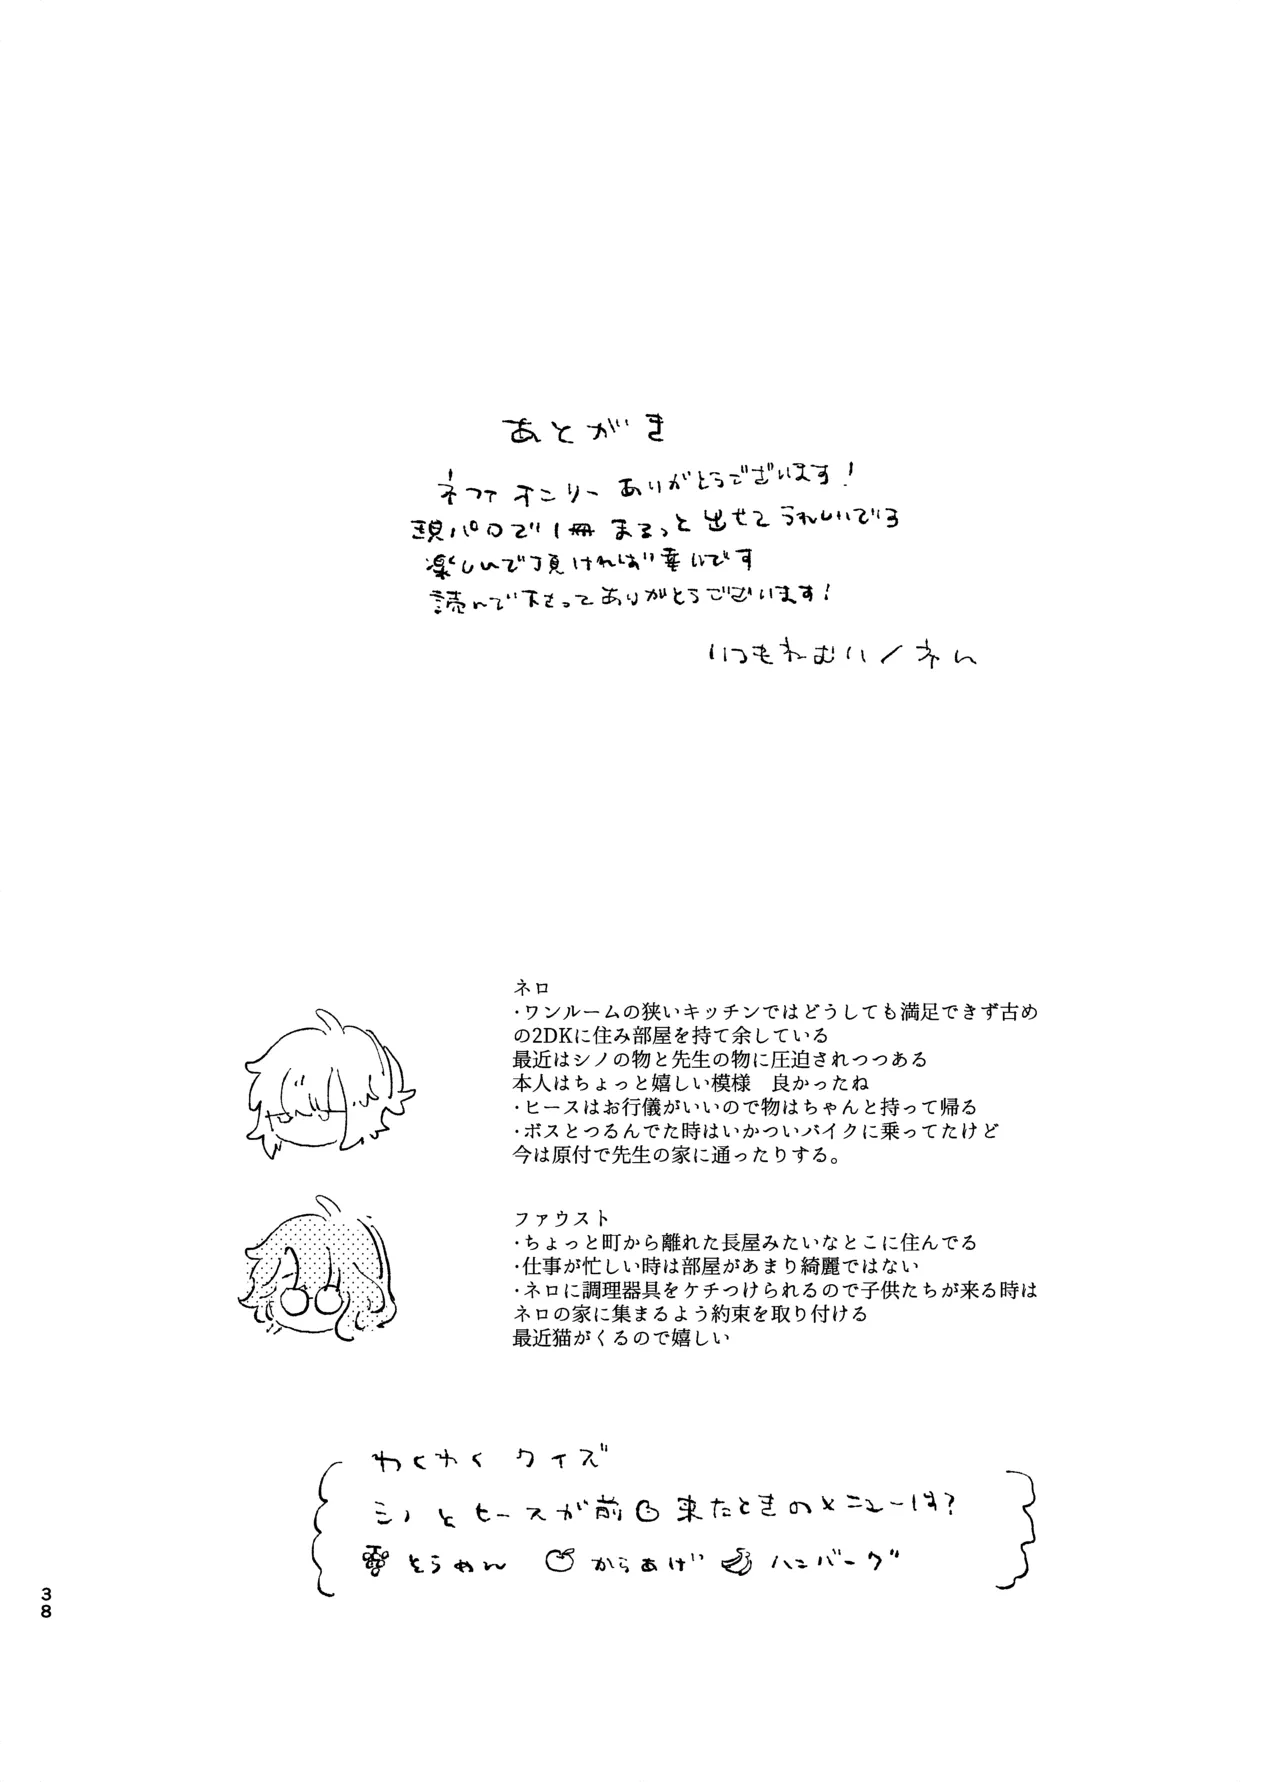 あとがき
ネファオンリーありがとうございます!
現パロで1冊まるっと出せてうれしいでいる
楽しんで頂ければ幸いです
読んで下さってありがとうございます!
いつもねむい/ネん
ネロ
・ワンルームの狭いキッチンではどうしても満足できず古め
の2DKに住み部屋を持て余している
最近はシノの物と先生の物に圧迫されつつある
本人はちょっと嬉しい模様 良かったね
・ヒースはお行儀がいいので物はちゃんと持って帰る
・ボスとつるんでた時はいかついバイクに乗ってたけど
今は原付で先生の家に通ったりする。
ファウスト
・ちょっと町から離れた長屋みたいなとこに住んでる
・仕事が忙しい時は部屋があまり綺麗ではない
・ネロに調理器具をケチつけられるので子供たちが来る時は
ネロの家に集まるよう約束を取り付ける
最近猫がくるので嬉しい
わくわくクイズ
シノとヒースが前回来たときのメニューは?
とうめん からあげ ハンバーグ
38